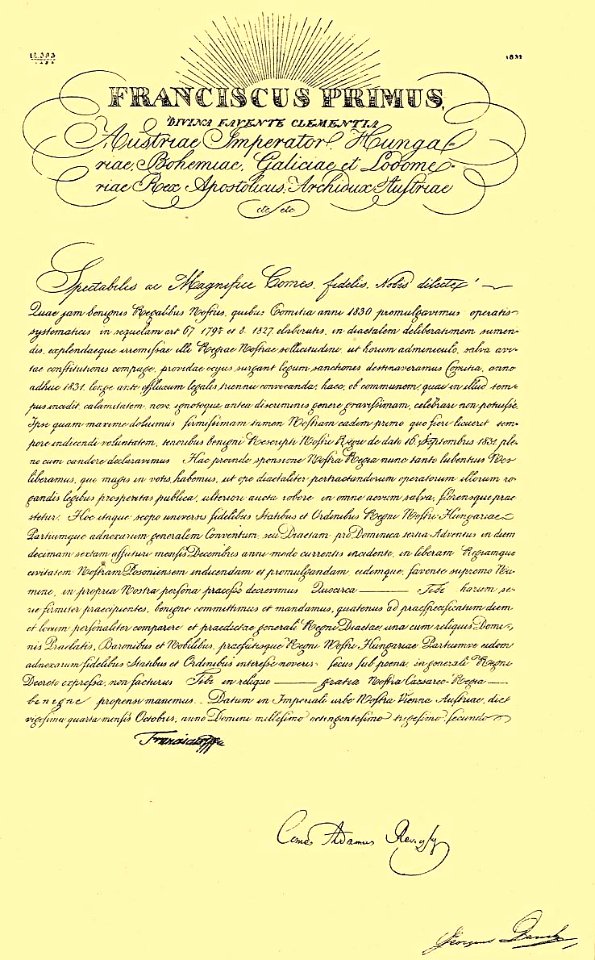 1832
FRANCISCUS PRIMUS
DIVINA FAVENTE CLEMENTIA
Austriae Imperator, Hunga-
riae, Bohemiae, Galiciae et Lodome-
riae Rex Apostolicus, Archidux Austriae
etc etc
Spectabilis ac Magnifice Comes, fidelis, Nobis dilecte!
Quae jam benignis Regalibus Nostris, quibus Comitia anni 1830 promulgavimus operatis
systematicis in sequelam art 67 179 et 8. 1827 elaboratis, in diaetalem deliberationem sumen-
dis, explendaeque irremissae illi Regiae Nostrae sollicitudini, ut horum adminiculo, salva avi-
tae constitutionis compage, providae ocyus surgant legum sanctiones destinaveramus Comitia, anno
adhuc 1831. longe ante effluxum legalis triennii convocanda; haec, ob communem, quae in illud tem-
pus incidit calamitatem, novo ignotoque antea discriminis genere gravissimam, celebrari non potuisse,
Ipsi quam maxime doluimus firmissimam tamen Nostram eadem primo quo fieri licuerit tem-
pore indicendi voluntatem, tenoribus benigni Rescripti Nostri Regii de dato 16 Septembris 1831 ple-
no cum candore declaravimus Hac proinde sponsione Nostra Regia nunc tanto lubentius Nos
liberamus, quo magis in votis habemus, ut ope diaetaliter pertractandorum operatorum illorum ro-
gandis legibus prosperitas publica, ulteriore aucta robore in omne aevum salva, florensque prae-
stetur. Hoc itaque scopo universis fidelibus Statibus et Ordinibus Regni Nostri Hungariae
Partiumque adnexarum generalem Conventum, seu Diaetam pro Dominica tertia Adventus in diem
decimam sextam affuturi mensis Decembris anni modo currentis incidente, in liberam Regiamque
civitatem Nostram Posoniensem indicendam et promulgandam eidemque, favente supremo Nu-
mine, in propria Nostra persona praeesse decrevimus Quocirca Tibi harum se-
rie firmiter praecipientes, benigne committimus et mandamus, quatenus ad praespecificatum diem
et locum personaliter comparere et praedictae generali Regni Diaetae, una cum reliquis Domi-
nis Praelatis, Baronibus et Nobilibus, praefatisque Regni Nostri Hungariae Partiumve eidem
adnexarum fidelibus Statibus et Ordinibus interesse noveris secus sub poena in generali Regni
Decreto expressa, non facturus Tibi in reliquo gratia Nostra Caesareo-Regia
benigne propensi manemus. Datum in Imperiali urbe Nostra Vienna Austriae, die
vigesima quarta mensis Octobris, anno Domini millesimo octingentesimo trigesimo secundo
Franciscus
Comes Adamus Reviczky